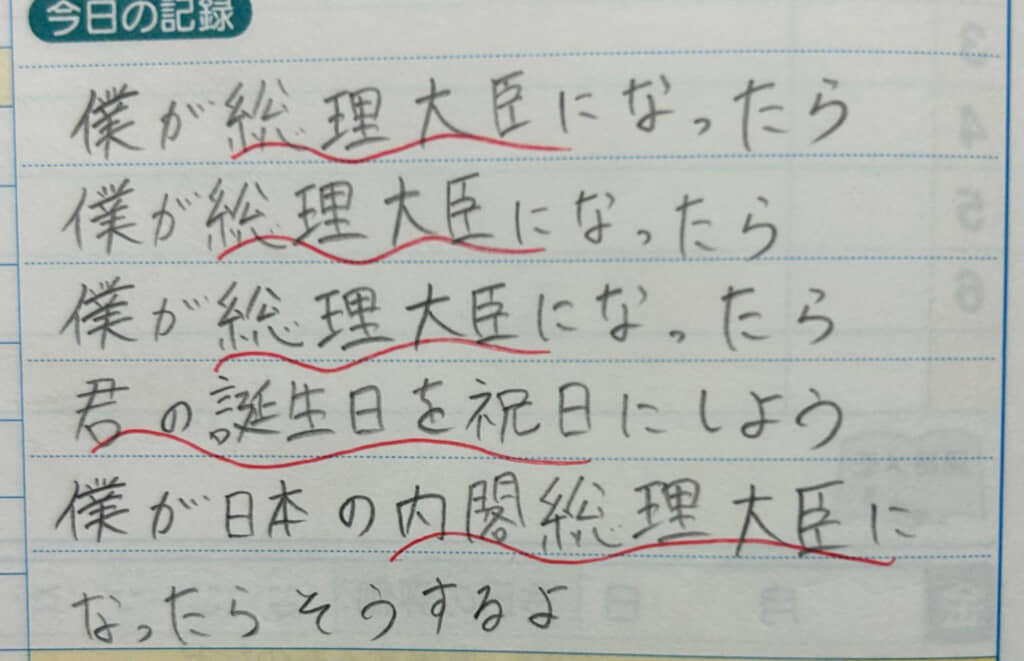 今日の記録
僕が総理大臣になったら
僕が総理大臣になったら
僕が総理大臣になったら
君の誕生日を祝日にしよう
僕が日本の内閣総理大臣に
なったらそうするよ